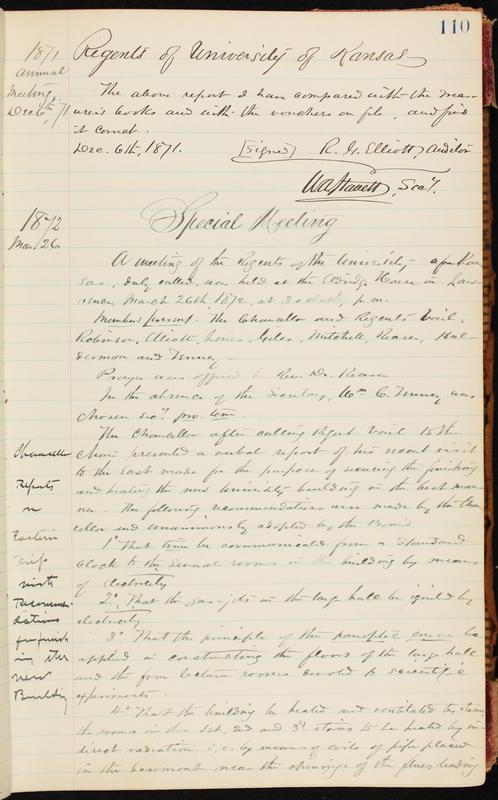 110
1871
Annual
Meeting
Dec 6th, 71
Regents of University of Kansas
The above report I have compared with the Treas-
urer's books and with the vouchers on file, and find
it correct.
Dec. 6th, 1871. [Signed] R. G. Elliott, Auditor
Sec'y.
1872
Mar. 26
Special Meeting
A meeting of the Regents of the University of Kan
sas, duly called, was held at the Eldridge House in Law-
rence, March 26th 1872, at 3 o'clock, p.m.
Members present. The Chancellor and Regents Vail,
Robinson, Giles, Mitchell, Reaser, Hal-
derman and Tenney
Prayer was offered by Rev. Dr. Reaser
In the absence of the Secretary, Wm C. Tenney was
chosen Sec'y pro. tem.
The Chancellor after calling Regent Vail to the
chair presented a verbal report of his recent visit
to the East made for the purpose of securing the finishing
and heating the new University building in the best man-
ner. The following recommendations were made by the Chan
cellor and unanimously adopted by the Board
1st That time be communicated from a standard
clock to the several rooms in the building by means
of electricity
2d. That the gas-jets in the large hall be ignited by
electricity
3d. That the principle of the panoptic curve be
applied in constructing the floors of the large hall
and the four lecture rooms devoted to scientific
experiments.
4th That the building be heated and ventilated by steam
the rooms in the 1st, 2nd and 3d stories to be heated by in
direct radiation i.e. by means of coils of pipe placed
in the basement near the openings of the flues leading
Chancellor
Reports
on
Eastern
trip
with
Recommen
dations
for finish
ing the
new
Building